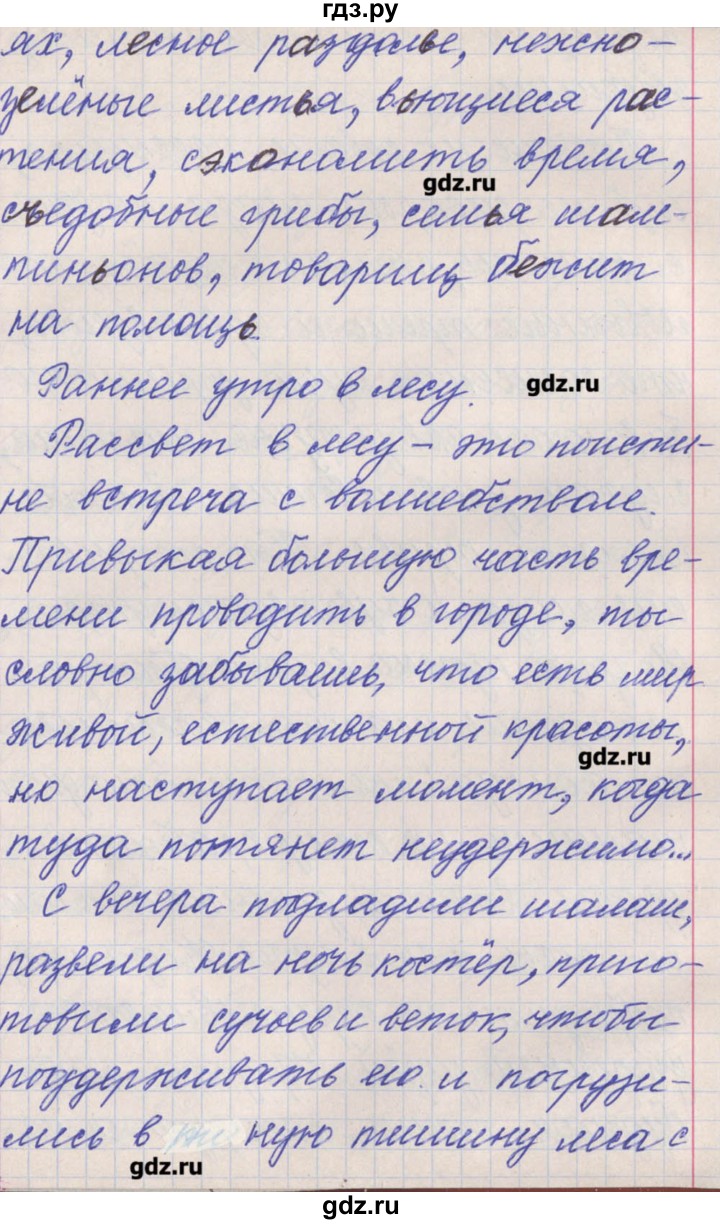 гдз.ру
ях, лесное раздолье, нежно-
зелёные листья, вьющиеся рас-
тения, сэкономить время,
gdz.ru
съедобные грибы, семья шам-
пиньонов, товарищ бежит
на помощь.
Раннее утро в лесу.
gdz.ru
Рассвет в лесу – это поисти-
не встреча с волшебством.
Привыкая большую часть вре-
мени проводить в городе, ты
словно забываешь, что есть мир
живой, естественной красоты,
gdz.ru
но наступает момент, когда
туда потянет неудержимо...
С вечера подладили шалаш,
развели на ночь костёр, приго-
товили сучьев и веток, чтобы
поддерживать его. и погрузи-
лись в ную тишину леса с
gdz.ru
gdz.ru